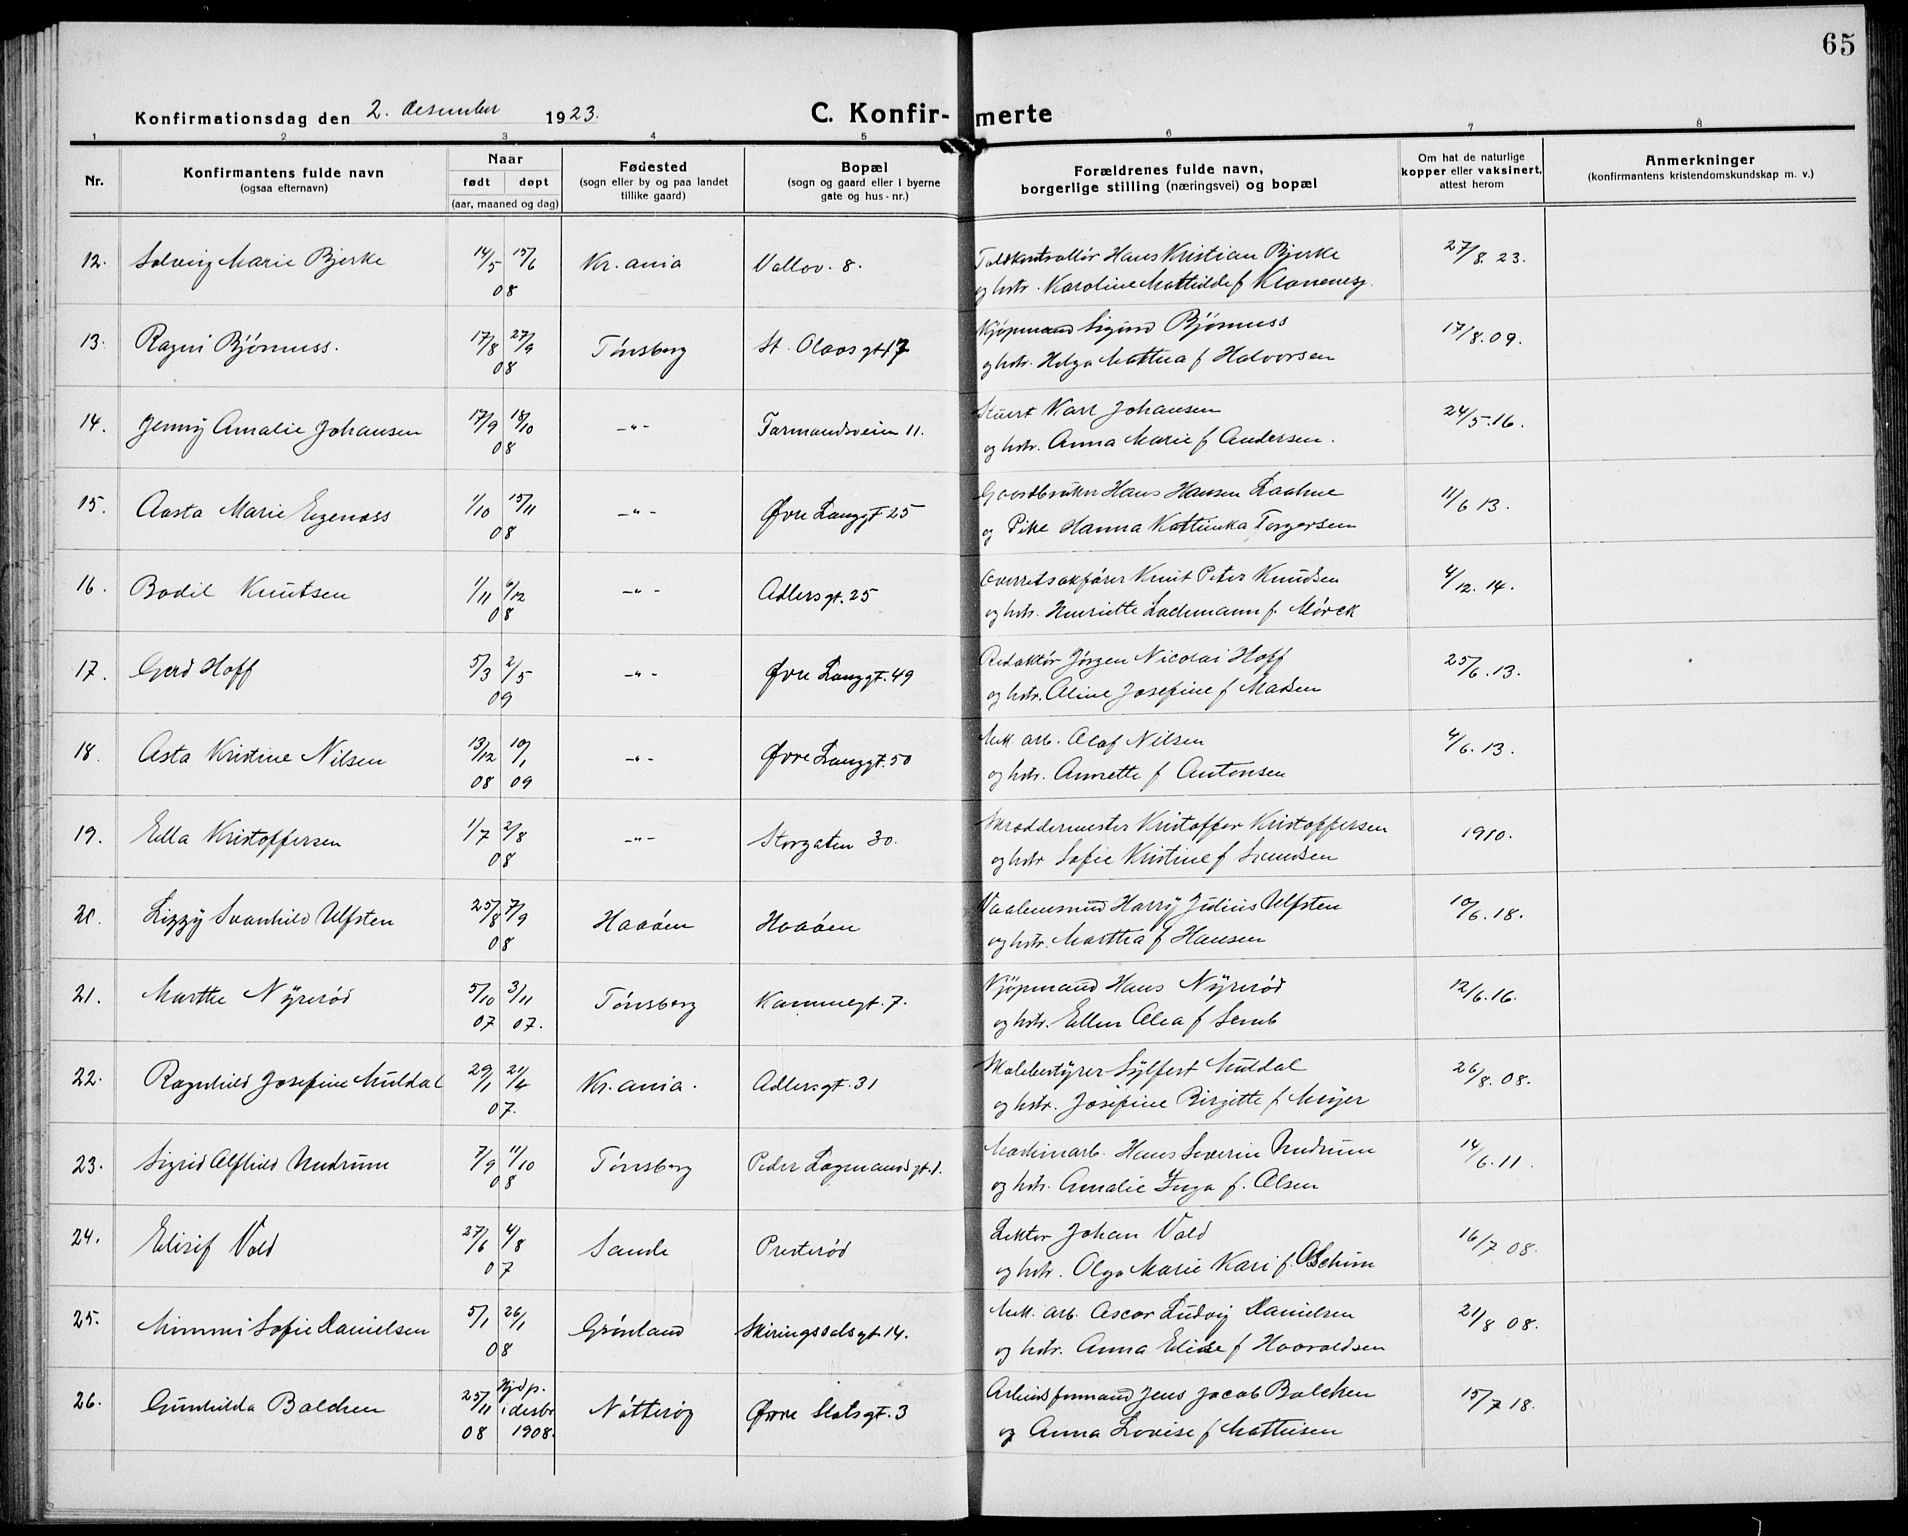 65
Konfirmationsdag den 2. desember 1923.
C. Konfirmerte
1 2 3 4 5 6 7 8
Nr.
Konfirmantens fulde navn
(ogsaa efternavn)
Naar
født døpt
(aar, maaned og dag)
Fødested
(sogn eller by og paa landet
tillike gaard)
Bopæl
(sogn og gaard eller i byerne
gate og hus-nr.)
Forældrenes fulde navn,
borgerlige stilling (næringsvei) og bopæl
Om hat de naturlige
kopper eller vaksinert,
attest herom
Anmerkninger
(konfirmantens kristendomskundskap m. v.)
12. Solveig Marie Bjerke 14/5 15/6 08 Kr.ania Valløv. 8. Toldkontrollør Hans Kristian Bjerke 27/8. 23.
og hstr. Karoline Mathilde f
13. Ragni Bjørnuss. 17/8 27/9 08 Tønsberg St. Olavsgt 17 Kjøpmand Sigurd Bjørnuss 17/8.09.
og hstr. Helga Mathea f Halvorsen
14. Jenny Amalie Johansen 17/9 18/10 08 -"- Farmandsveien 11. Stuert Karl Johansen 24/5.16.
og hstr. Anna Marie f Andersen.
15. Aasta Marie Egenæss 1/10 15/11 08 -"- Øvre Langgt 25 Gaardbruker Hans Hansen 11/6 13.
og Pike Hanna Kathinka Torgersen
16. Bodil Knutsen 1/11 6/12 08 -"- Adlersgt. 25 Overretsakfører Knut Peter Knudsen 4/12. 14.
og hstr. Henriette Lachmann f. Mørck
17. Gerd Hoff 5/3 2/5 09 -"- Øvre Langgt. 49 Redaktør Jørgen Nicolai Hoff 25/6.13.
og hstr. Aline Josefine f Madsen
18. Asta Kristine Nilsen 13/12 08 10/1 09 -"- Øvre Langgt. 50 Mek. arb. Olaf Nilsen 4/6. 13.
og hstr. Annette f Antonsen
19. Ella Kristoffersen 1/7 2/8 08 -"- Storgaten 30. Skræddermester Kristoffer Kristoffersen 1910.
og hstr Sofie Kristine f
20. Lizzy Svanhild Ulfsten 25/8 7/9 08 Haaøen Haaøen Harry Julius Ulfsten 10/6.18.
og hstr. Martha f Hansen
21. Marthe Nyrerød 5/10 07 3/11 07. Tønsberg Kammegt. 7. Kjøpmand Hans Nyrerød 12/6.16.
og hstr. Ellen Alea f Semb
22. Ragnhild Josefine Muldal 29/1 21/4 07. Kr.ania. Adlersgt. 31 Skolebestyrer Sylfest Muldal 26/8. 08.
og hstr. Josefine Birgitte f Meyer
23. Sigrid Alfhild Undrum 7/9 11/10 08 Tønsberg Peder Lagmandsgt. 1. Maskinarb. Hans Severin Undrum 14/6.11.
og hstr. Amalie Inga f. Olsen
24. Elisif Vold 27/6 4/8 07 Sande Presterød Lektor Johan Vold 16/7 08.
og hstr. Olga Marie Kari f.
25. Mimmi Sofie Danielsen 5/1 26/1 08 Grønland Skiringssalsgt. 14. Mek. arb. Oscar Ludvig Danielsen 21/8 08.
og hstr. Anna Elise f Haavaldsen
26. Gunhilda Balchen 25/11 08 Hjdp. i desbr 1908. Nøtterøy Øvre Slotsgt. 3 Arbeidsformand Jens Jacob Balchen 15/7 18.
og Anna Lovise f Mathisen